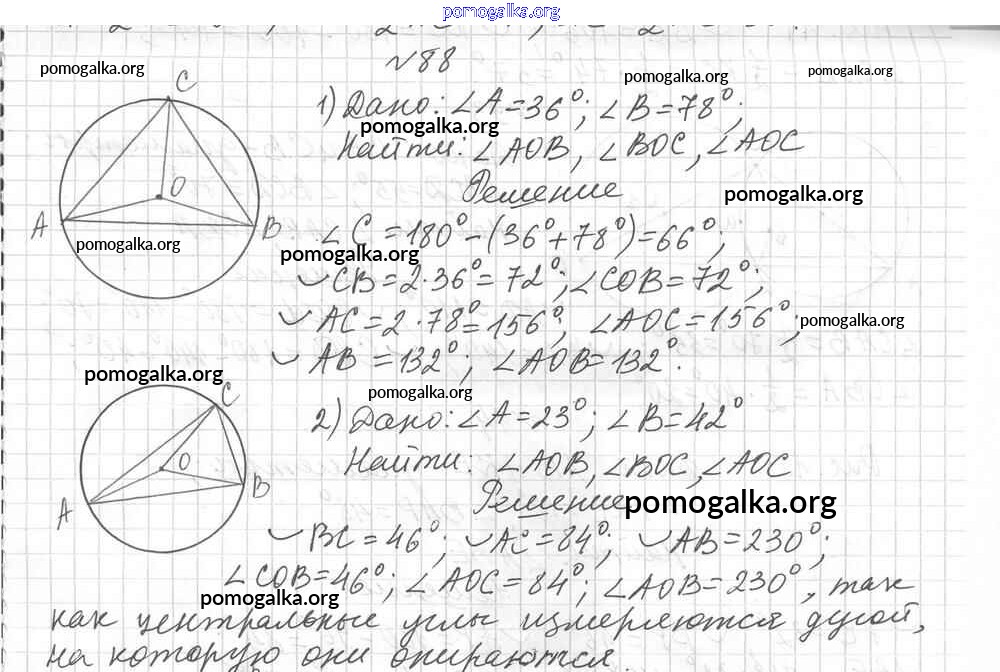 pomogalka.org
№88
pomogalka.org
pomogalka.org
pomogalka.org
C
O
A
B
pomogalka.org
1) Дано: ∠A=36°; ∠B=78°;
pomogalka.org
Найти: ∠AOB, ∠BOC, ∠AOC
Решение
pomogalka.org
∠C=180°-(36°+78°)=66°;
pomogalka.org
◡CB=2·36°=72°; ∠COB=72°;
◡AC=2·78°=156°; ∠AOC=156°;
pomogalka.org
◡AB=132°; ∠AOB=132°.
pomogalka.org
pomogalka.org
C
O
A
B
2) Дано: ∠A=23°; ∠B=42°
Найти: ∠AOB, ∠BOC, ∠AOC
Решение
pomogalka.org
◡BC=46°; ◡AC=84°; ◡AB=230°;
∠COB=46°; ∠AOC=84°; ∠AOB=230°, так
pomogalka.org
как центральные углы измеряются дугой,
на которую они опираются